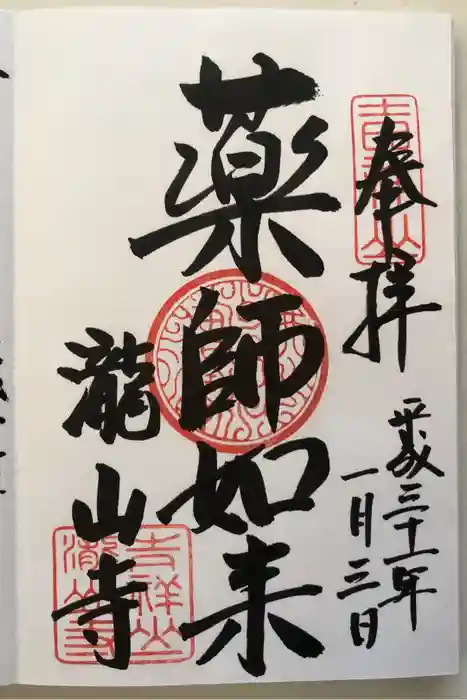 吉祥山
奉拝
平成三十一年
一月三日
薬師如来
瀧山寺
吉祥山
瀧山寺